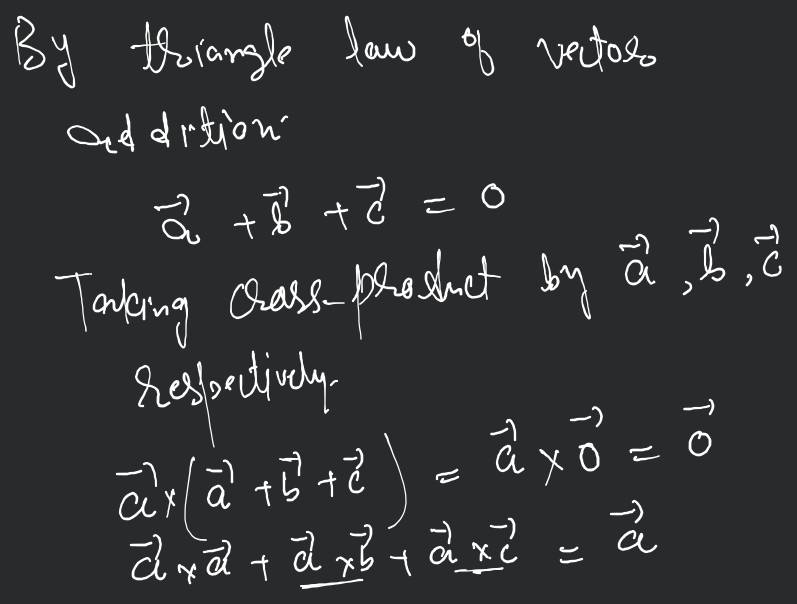 By triangle law of vector
addition
$\vec{a} + \vec{b} + \vec{c} = 0$
Taking cross-product by $\vec{a}, \vec{b}, \vec{c}$
respectively.
$\vec{a} \times (\vec{a} + \vec{b} + \vec{c}) = \vec{a} \times \vec{0} = \vec{0}$
$\vec{a} \times \vec{a} + \underline{\vec{a} \times \vec{b}} + \underline{\vec{a} \times \vec{c}} = \vec{a}$